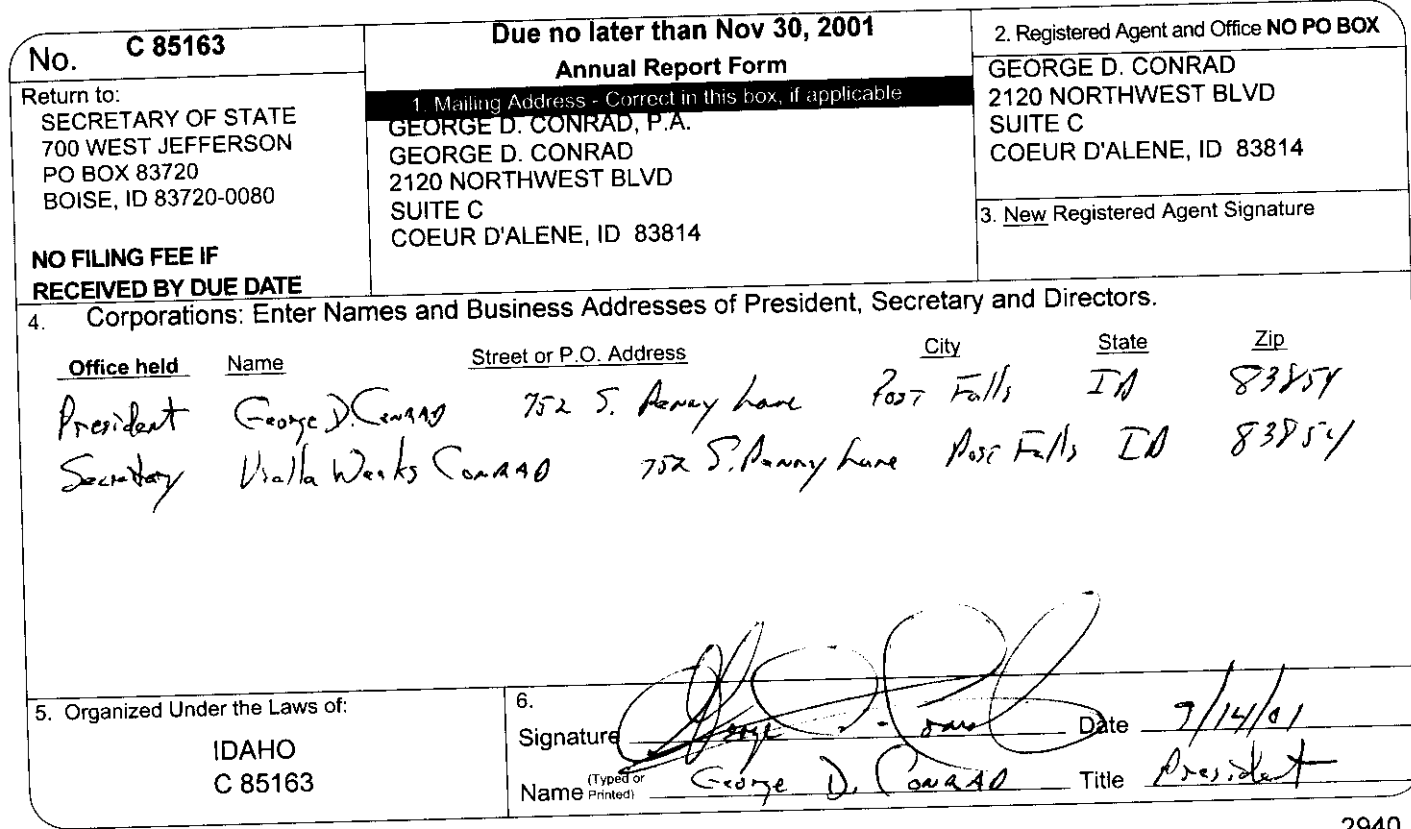 No. C 85163
Return to:
SECRETARY OF STATE
700 WEST JEFFERSON
PO BOX 83720
BOISE, ID 83720-0080
NO FILING FEE IF
RECEIVED BY DUE DATE
Due no later than Nov 30, 2001
Annual Report Form
1. Mailing Address - Correct in this box, if applicable
GEORGE D. CONRAD, P.A.
GEORGE D. CONRAD
2120 NORTHWEST BLVD
SUITE C
COEUR D'ALENE, ID 83814
2. Registered Agent and Office NO PO BOX
GEORGE D. CONRAD
2120 NORTHWEST BLVD
SUITE C
COEUR D'ALENE, ID 83814
3. New Registered Agent Signature
4. Corporations: Enter Names and Business Addresses of President, Secretary and Directors.
Office held Name Street or P.O. Address City State Zip
President George D. Conrad 752 S. Penny Lane Post Falls ID 83854
Secretary Weeks Conrad 752 S. Penny Lane Post Falls ID 83854
5. Organized Under the Laws of:
IDAHO
C 85163
6.
Signature George D. Conrad Date 9/14/01
Name (Typed or Printed) George D. Conrad Title President
2940